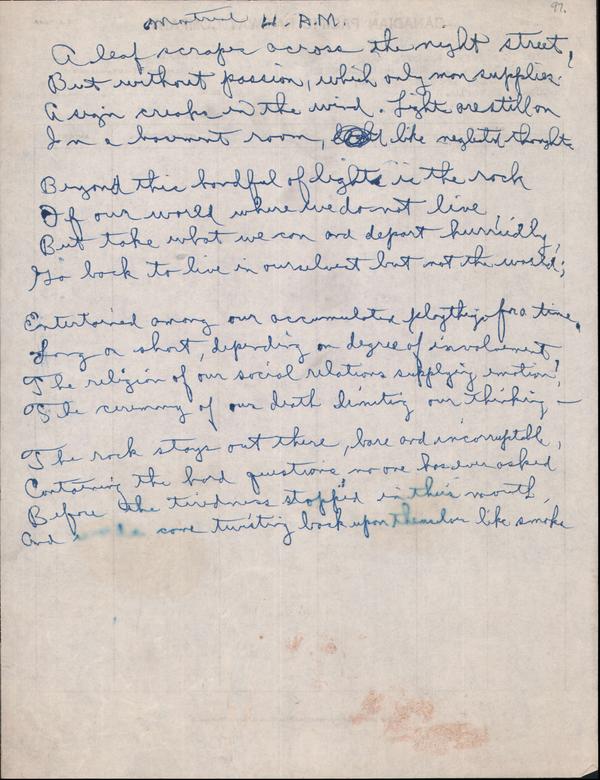 97.
Montreal 4 A.M.
A leaf scrapes across the night street,
But without passion, which only man supplies.
A sign creaks in the wind. Lights are still on
In a basement room, like neglected thoughts
Beyond this handful of lights is the rock
Of our world where we do not live,
But take what we can and depart hurriedly,
Go back to live in ourselves but not the world;
Entertained among our accumulated playthings for a time,
Long or short, depending on degree of involvement,
The religion of our social relations supplying emotion,
The ceremony of our death limiting our thinking —
The rock stays out there, bare and incorruptible,
Containing the hard questions no one has ever asked
Before the tiredness stopped in their mouth,
And come twisting back upon themselves like smoke